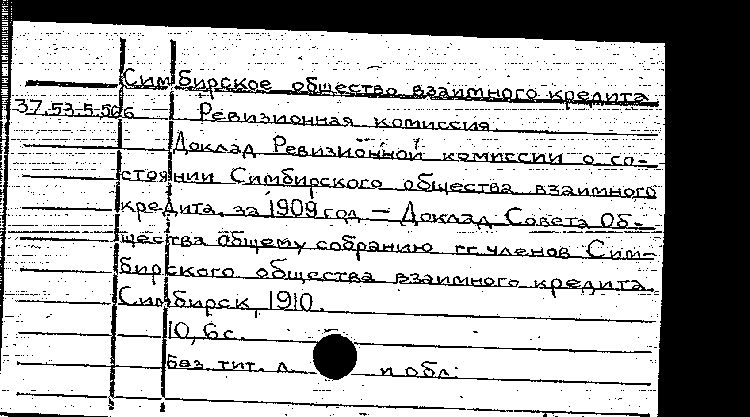 Симбирское общество взаимного кредита
37.53.5.506 Ревизионная комиссия.
Доклад Ревизионной комиссии о со-
стоянии Симбирского общества взаимного
кредита за 1909 год. — Доклад Совета Об-
щества общему собранию гг. членов Сим-
бирского общества взаимного кредита.
Симбирск, 1910.
10, 6 с.
Без тит. л. и обл.